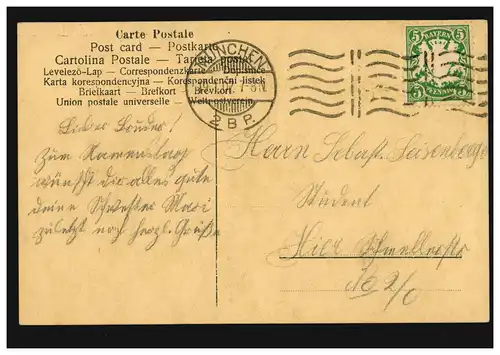 Carte Postale
Post card — Postkarte
Cartolina Postale — Tarjeta postal
Levelező-Lap — Correspondenzkarte Dopisnice
Karta korespondencyjna — Korespondenční lístek
Briefkaart — Brefkort Brévkort
Union postale universelle — Weltpostverein
MÜNCHEN
2 B.P.
BAYERN
5 5
5 5
Lieber Bruder!
Zum Namenstag
wünscht dir alles gute
deine Schwester Mari
zuletzt noch herzl. Grüße
Herrn Sebast.
Student
Hier Schnellerstr.
No 2/0